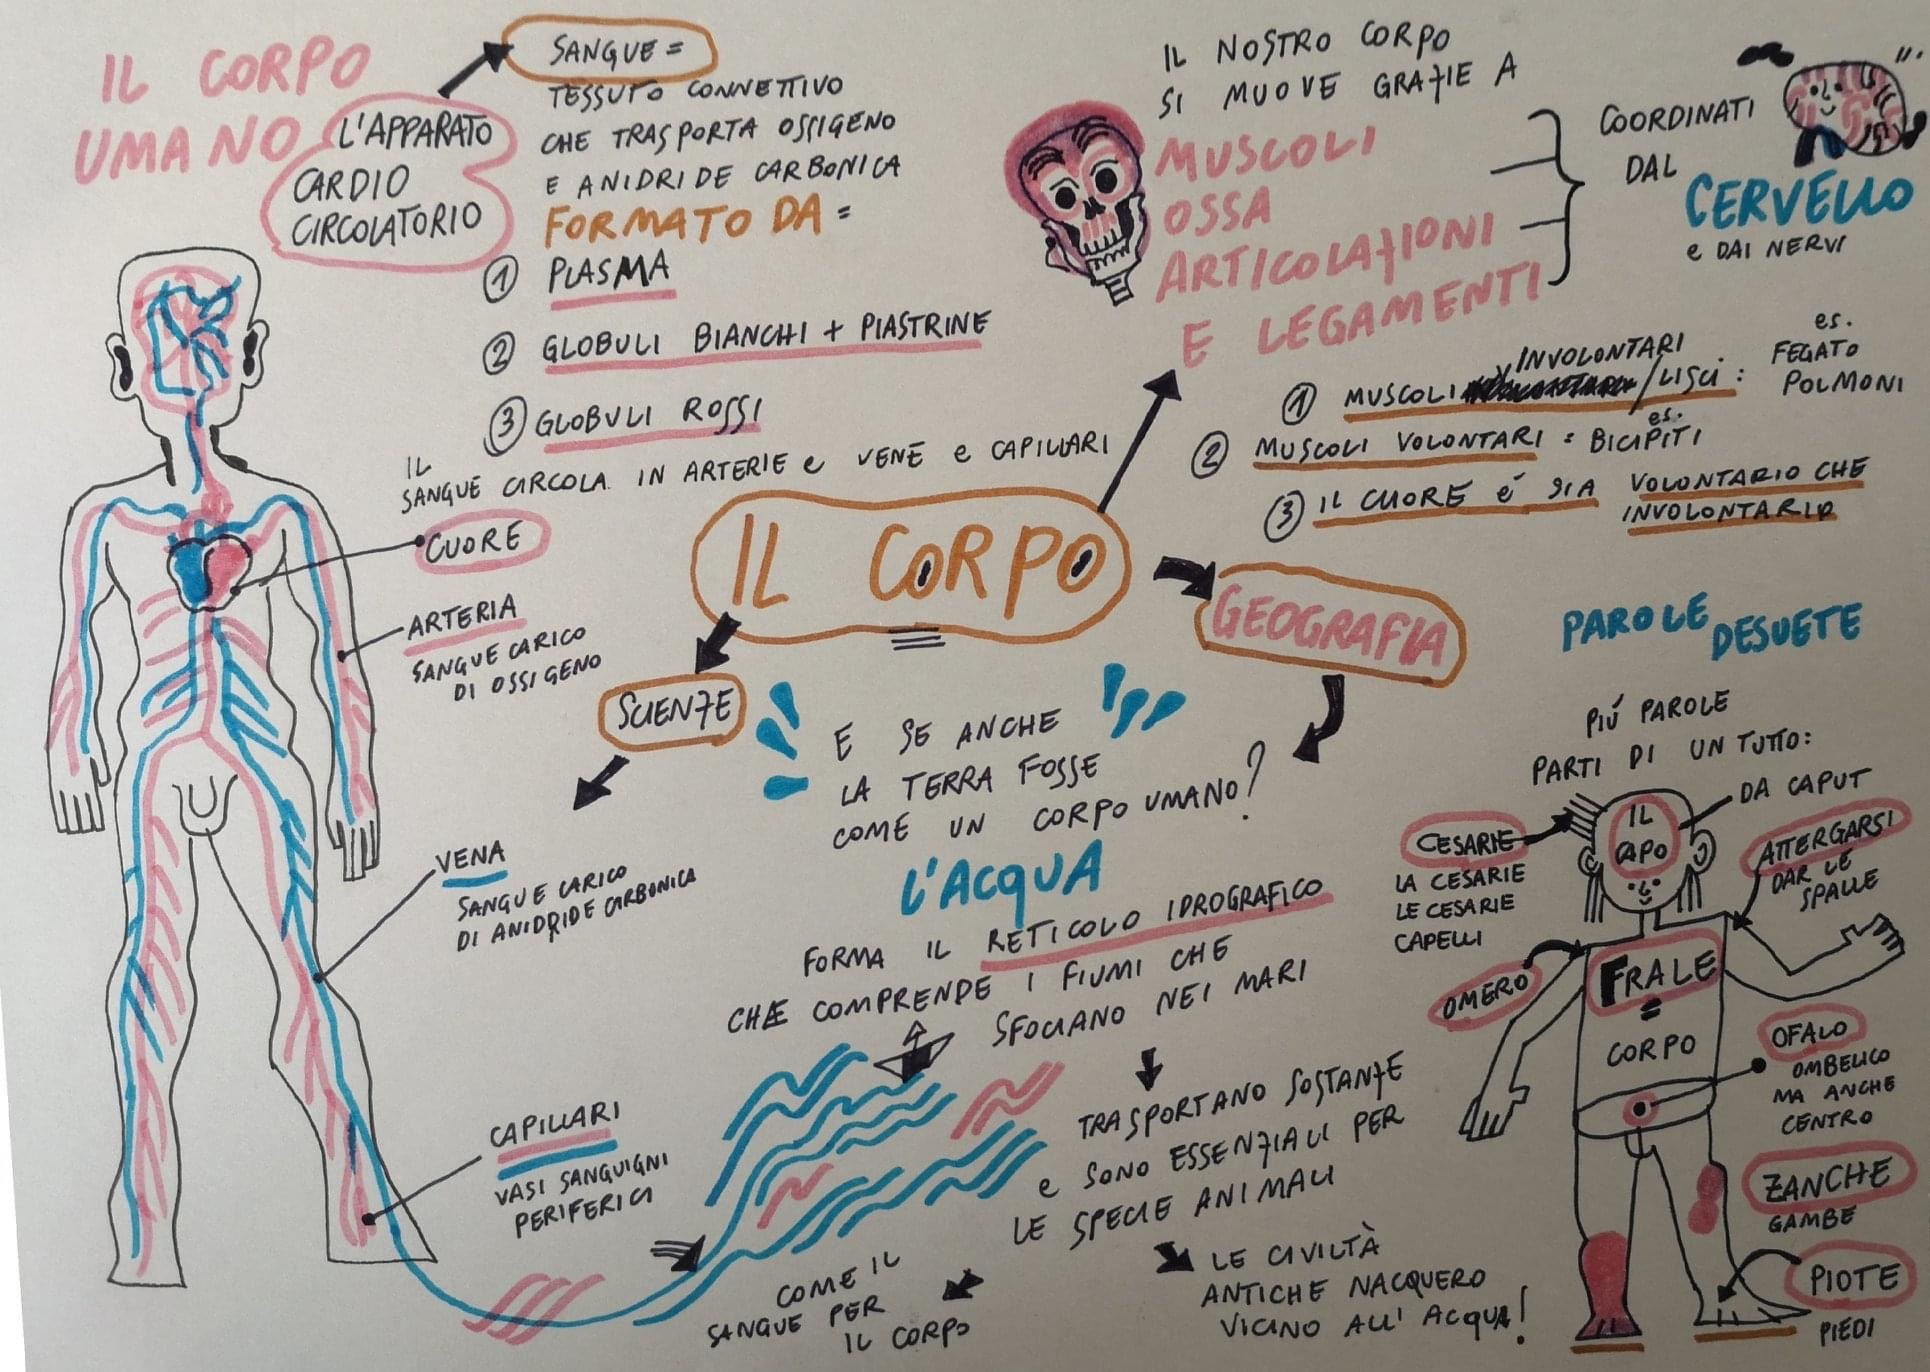 IL CORPO
UMANO
L'APPARATO
CARDIO
CIRCOLATORIO
SANGUE =
TESSUTO CONNETTIVO
CHE TRASPORTA OSSIGENO
E ANIDRIDE CARBONICA
FORMATO DA =
① PLASMA
② GLOBULI BIANCHI + PIASTRINE
③ GLOBULI ROSSI
IL
SANGUE CIRCOLA IN ARTERIE e VENE e CAPILLARI
CUORE
ARTERIA
SANGUE CARICO
DI OSSIGENO
VENA
SANGUE CARICO
DI ANIDRIDE CARBONICA
CAPILLARI
VASI SANGUIGNI
PERIFERICI
IL CORPO
SCIENZE
GEOGRAFIA
IL NOSTRO CORPO
SI MUOVE GRAZIE A
MUSCOLI
OSSA
ARTICOLAZIONI
E LEGAMENTI
COORDINATI
DAL
CERVELLO
e DAI NERVI
① MUSCOLI INVOLONTARI / LISCI : es. FEGATO
POLMONI
② MUSCOLI VOLONTARI : es. BICIPITI
③ IL CUORE é SIA VOLONTARIO CHE
INVOLONTARIO
E SE ANCHE
LA TERRA FOSSE
COME UN CORPO UMANO?
L'ACQUA
FORMA IL RETICOLO IDROGRAFICO
CHE COMPRENDE I FIUMI CHE
SFOCIANO NEI MARI
TRASPORTANO SOSTANZE
e SONO ESSENZIALI PER
LE SPECIE ANIMALI
COME IL
SANGUE PER
IL CORPO
LE CIVILTÀ
ANTICHE NACQUERO
VICINO ALL'ACQUA!
PAROLE DESUETE
PIÚ PAROLE
PARTI DI UN TUTTO:
IL
CAPO
DA CAPUT
CESARIE
LA CESARIE
LE CESARIE
CAPELLI
ATTERGARSI
DAR LE
SPALLE
OMERO
FRALE
=
CORPO
OFALO
OMBELICO
MA ANCHE
CENTRO
ZANCHE
GAMBE
PIOTE
PIEDI